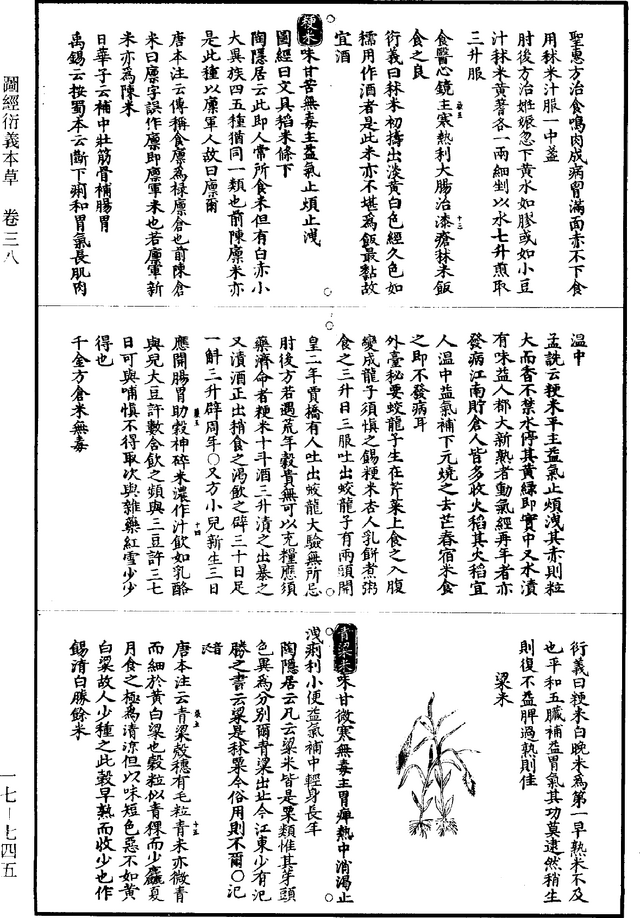 聖惠方治食鴨肉成病胷滿面赤不下食
用秫米汁服一中盞
肘後方治姙娠忽下黃水如膠或如小豆
汁秫米黃蓍各一兩細剉以水七升煎取
三升服
食醫心鏡主寒熱利大腸治漆瘡秫米飯
食之良
衍義曰秫米初擣出淡黃白色經久色如
糯用作酒者是此米亦不堪爲飯最黏故
宜酒
粳米味甘苦無毒主益氣止煩止洩
圖經曰文具稻米條下
陶隱居云此即人常所食米但有白赤小
大異族四五種猶同一類也前陳廩米亦
是此種以廩軍人故曰廩爾
唐本注云傳稱食廩爲祿廩倉也前陳倉
米曰廩字誤作廩即廩軍米也若廩軍新
米亦爲陳米
日華子云補中壯筋骨補腸胃
禹錫云按蜀本云斷下痢和胃氣長肌肉
溫中
孟詵云粳米平主益氣止煩洩其赤則粒
大而香不禁水停其黃綠即實中又水漬
有味益人都大新熟者動氣經再年者亦
發病江南貯倉人皆多收火稻其火稻宜
人溫中益氣補下元燒之去芒春宿米食
之即不發病耳
外臺秘要蛟龍子生在芹菜上食之入腹
變成龍子須慎之錫粳米杏人乳餅煮粥
食之三升日三服吐出蛟龍子有兩頭開
皇二年賈橋有人吐出蛟龍大驗無所忌
肘後方若遇荒年穀貴無可以充糧應須
藥濟命者粳米十斗酒三升漬之出暴之
又漬酒正出稍食之渴飲之辟三十日足
一斛三升辟周年○又方小兒新生三日
應開腸胃助穀神碎米濃作汁飲如乳酪
與兒大豆許數合飲之頻與三豆許三七
日可與哺慎不得取次與雜藥紅雪少少
得也
千金方倉米無毒
衍義曰粳米白晚米爲第一早熟米不及
也平和五臟補益胃氣其功莫逮然稍生
則復不益脾過熟則佳
粱米
青粱米味甘微寒無毒主胃痺熱中消渴止
洩痢利小便益氣補中輕身長年
陶隱居云凡云粱米皆是粟類惟其芽頭
色異爲分別爾青粱出北今江東少有氾
勝之書云粱是秫粟今俗用則不爾○氾
音汎
唐本注云青粱殼穗有毛粒青米亦微青
而細於黃白粱也穀粒似青稞而少麤夏
月食之極爲清涼但以味短色惡不如黃
白粱故人少種之此穀早熟而收少也作
錫清白勝餘米
圖經衍義本草　卷三八
一七—七四五